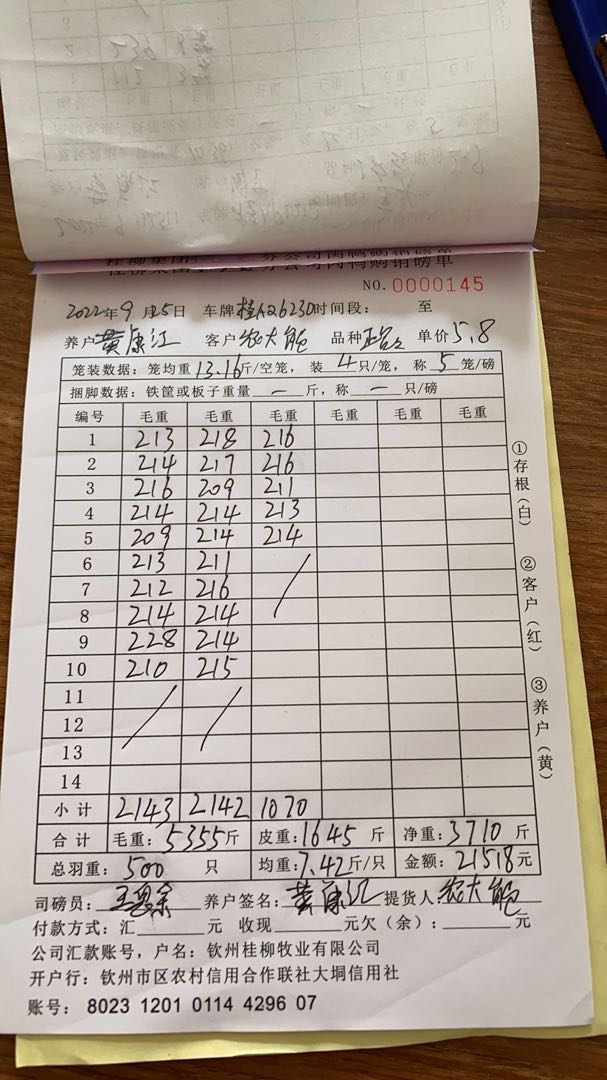 NO. 0000145
2022年9月25日 车牌桂A26230时间段: 至
养户黄康江 客户农大能 品种 单价5.8
笼装数据: 笼均重13.16斤/空笼, 装4只/笼, 称5笼/磅
捆脚数据: 铁筐或板子重量 一 斤, 称 一 只/磅
编号 毛重 毛重 毛重 毛重 毛重 毛重
1 213 218 216
2 214 217 216
3 216 209 211
4 214 214 213
5 209 214 214
6 213 211
7 212 216
8 214 214
9 228 214
10 210 215
11
12
13
14
小计 2143 2142 1070
合计 毛重: 5355斤 皮重: 1645斤 净重: 3710斤
总羽重: 500 只 均重: 7.42斤/只 金额: 21518元
司磅员: 养户签名: 黄康江 提货人: 农大能
付款方式: 汇 元 收现 元欠(余): 元
公司汇款账号, 户名: 钦州桂柳牧业有限公司
开户行: 钦州市区农村信用合作联社大垌信用社
账号: 8023 1201 0114 4296 07
①存根(白)
②客户(红)
③养户(黄)